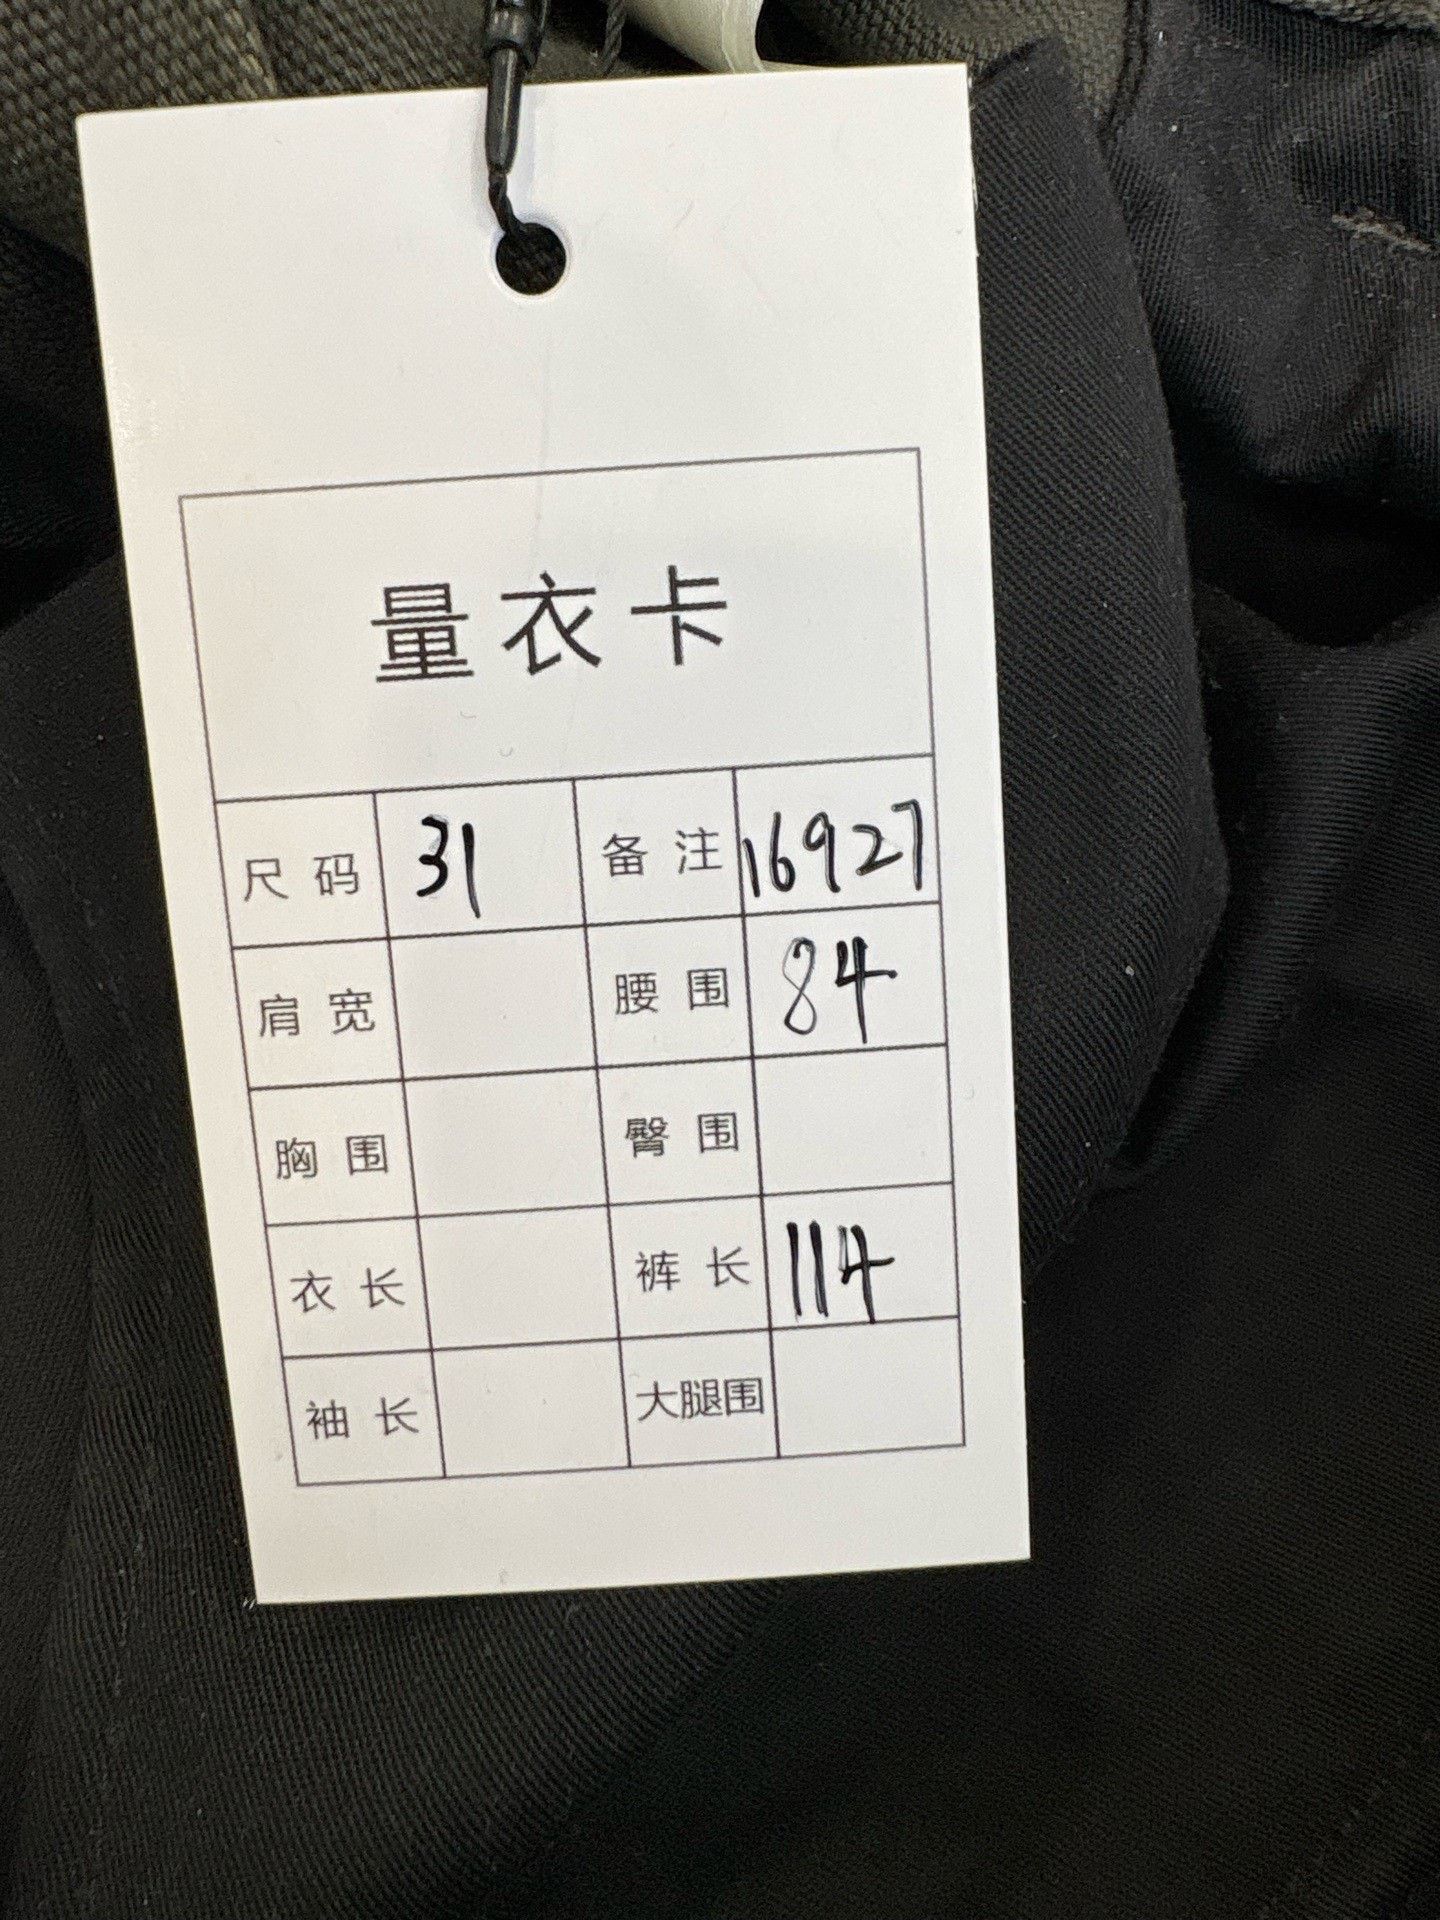 量衣卡
尺码 31 备注 16927
肩宽 腰围 84
胸围 臀围
衣长 裤长 114
袖长 大腿围